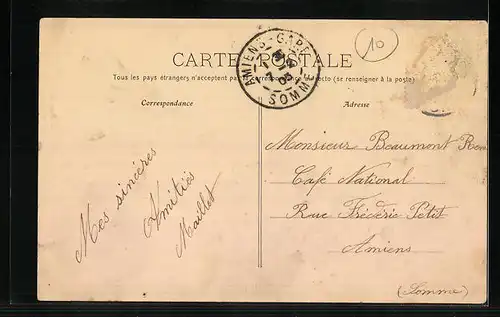 10
CARTE POSTALE
AMIENS-GARE
SOMME
Tous les pays étrangers n'acceptent pas la correspondance au recto (se renseigner à la poste)
Correspondance
Adresse
Mes sincères
Amitiés
Maillet
Monsieur Beaumont
Café National
Rue Fréderic Petit
Amiens
(Somme)